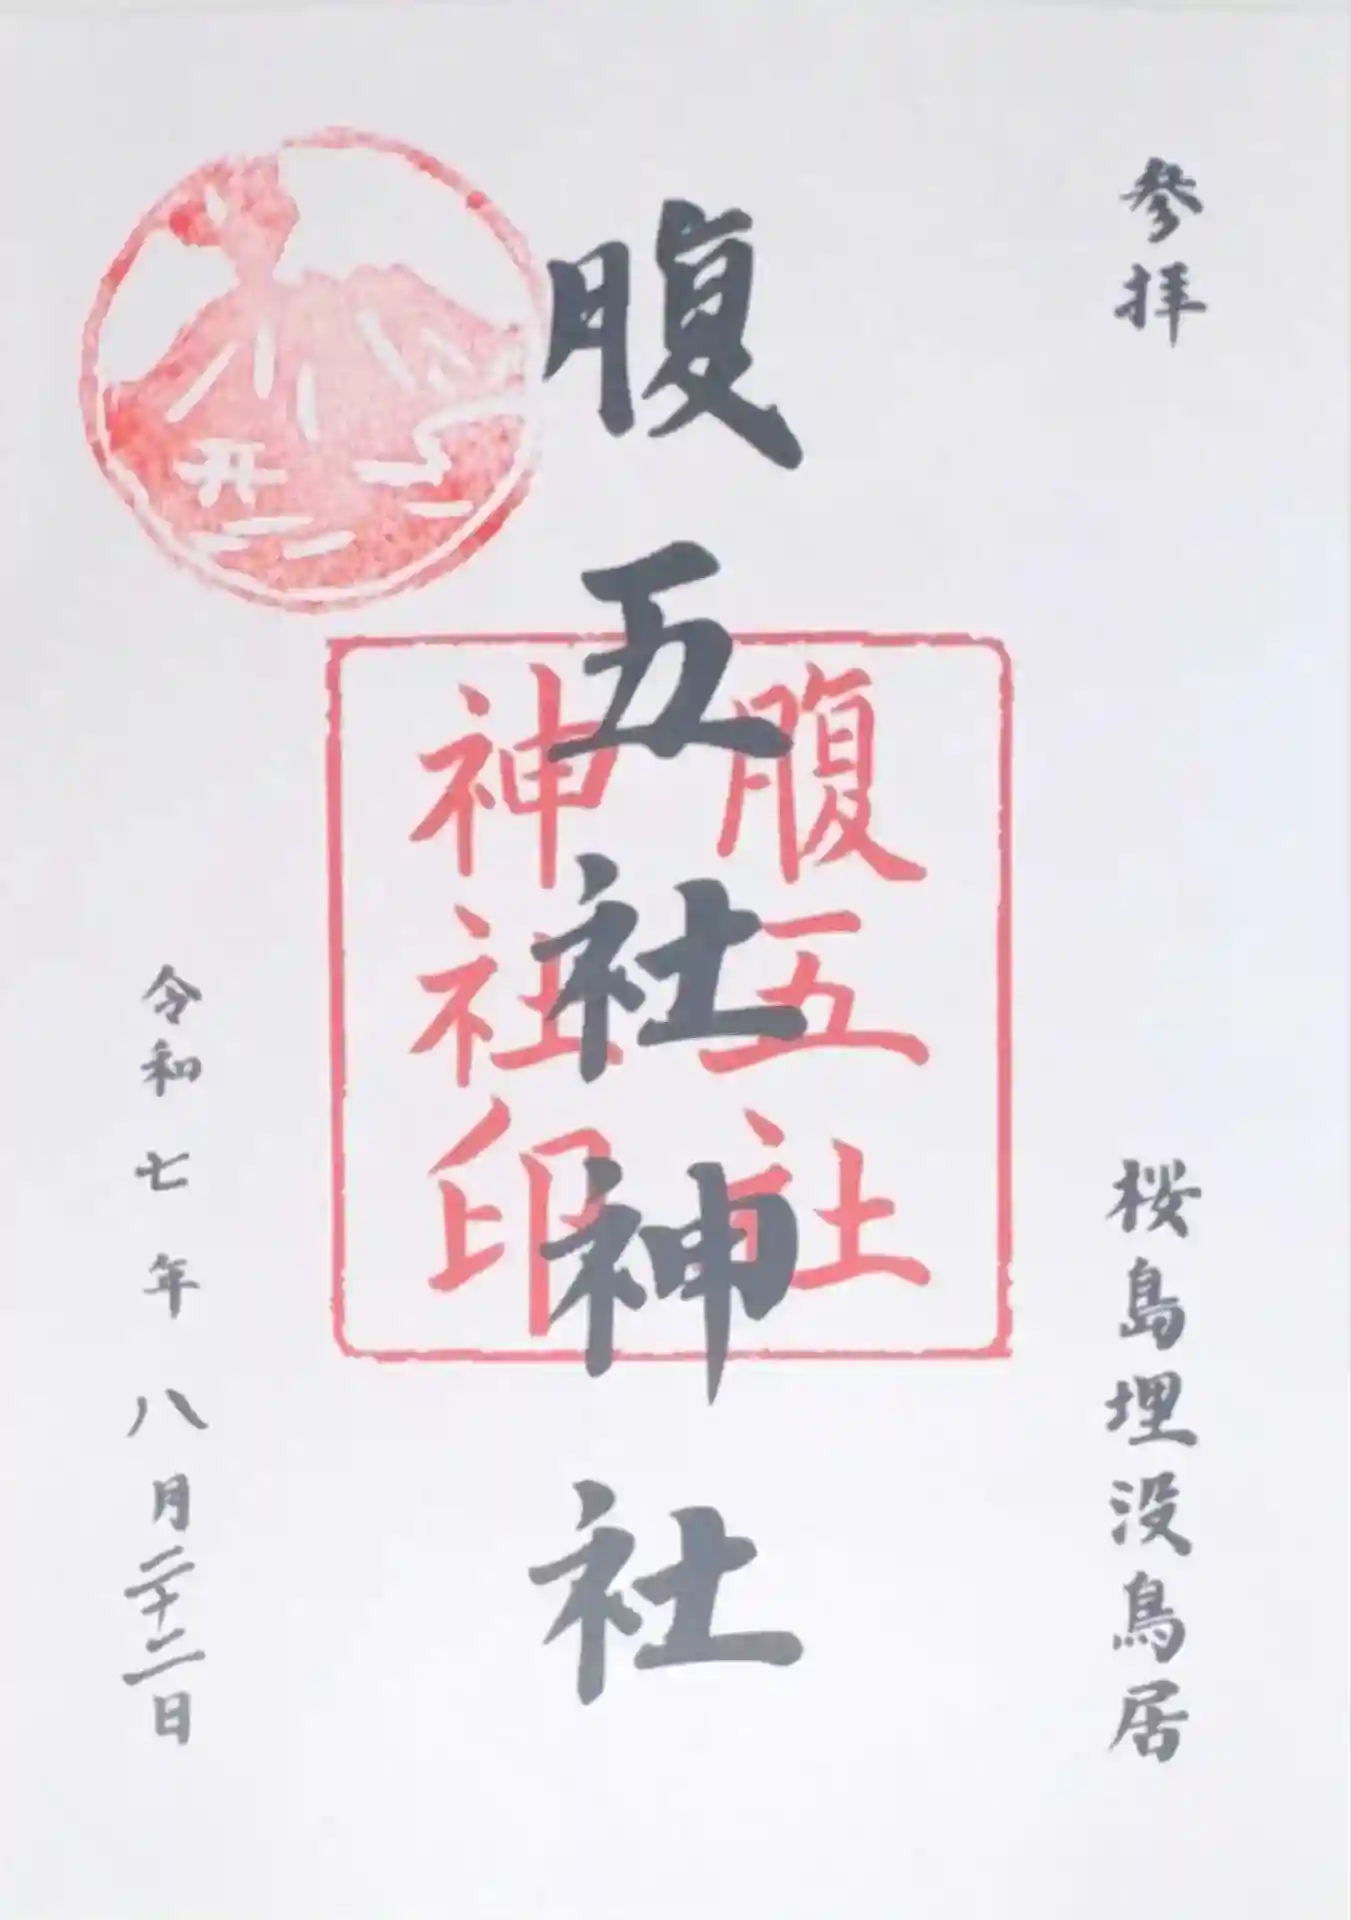 参拝
桜島埋没鳥居
腹五社神社
腹五社
神社印
令和七年八月二十二日